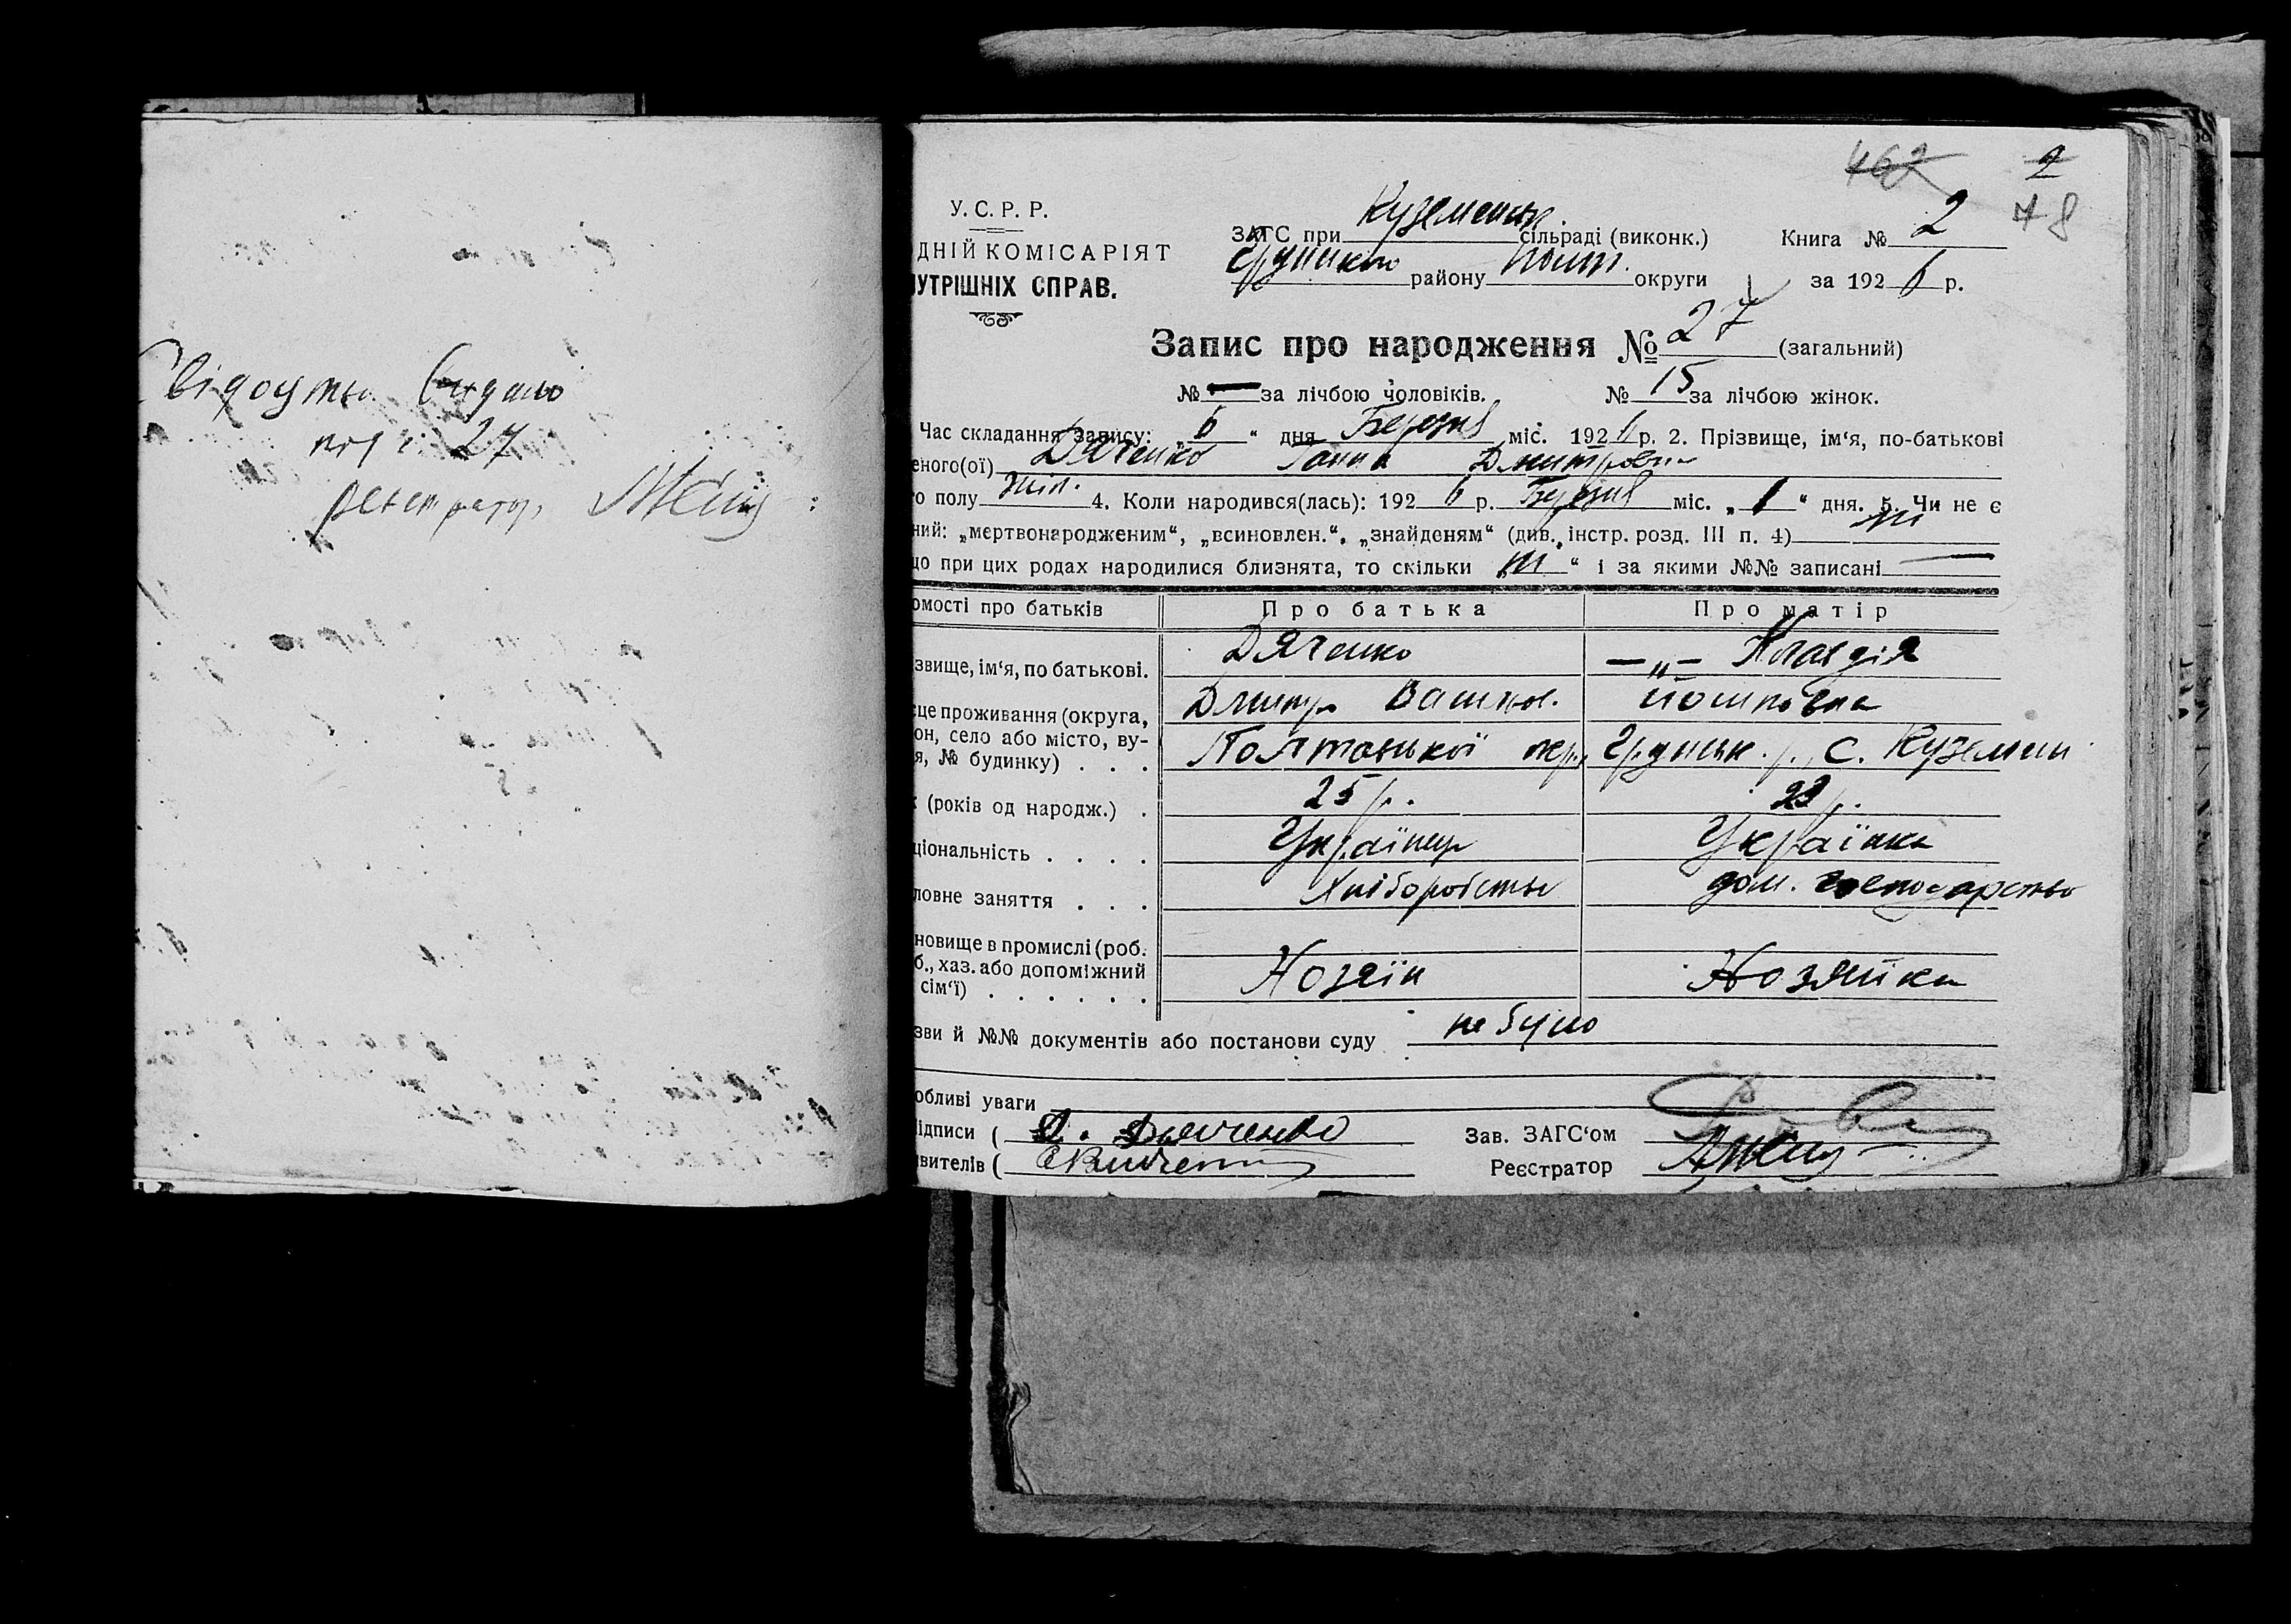 Свідоцтво видано
під ч. 27
реєстратор
462 2
78
У. С. Р. Р.
ДНІЙ КОМІСАРІЯТ
УТРІШНІХ СПРАВ.
ЗАГС при Куземенськ. сільраді (виконк.) Книга № 2
Грунського району Полт. округи за 1926 р.
Запис про народження № 27 (загальний)
№ — за лічбою чоловіків. № 15 за лічбою жінок.
Час складання запису: „6“ дня Березня міс. 1926 р. 2. Прізвище, ім‘я, по-батькові
еного(ої) Дяченко Ганна Дмитровна
го полу жін. 4. Коли народився(лась): 1926 р. Березня міс. „1“ дня. 5. Чи не є
ний: „мертвонародженим“, „всиновлен.“, „знайденям“ (див. інстр. розд. III п. 4) ні
що при цих родах народилися близнята, то скільки „ні“ і за якими №№ записані —
омості про батьків Про батька Про матір
Дяченко —„— Клавдія
звище, ім‘я, по батькові.
Дмитро Йосиповна
сце проживання (округа,
он, село або місто, ву-
я, № будинку) . . . Полтавської окр., Грунськ. р., с. Куземин
к (років од народж.) . 25 р. 22 р.
ціональність . . . . Українець Українка
ловне заняття . . . Хліборобство дом. господарство
новище в промислі (роб.
б., хаз. або допоміжний
сім‘ї) . . . . . . Хозяїн Хозяйка
зви й №№ документів або постанови суду не було
обливі уваги
ідписи ( Д. Дяченко Зав. ЗАГС‘ом
явителів ( Реєстратор